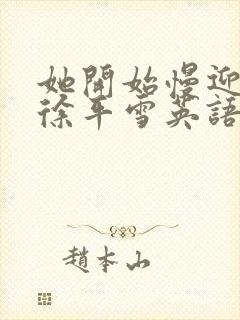 她開始慢迎
徐平雪英語
趙本山